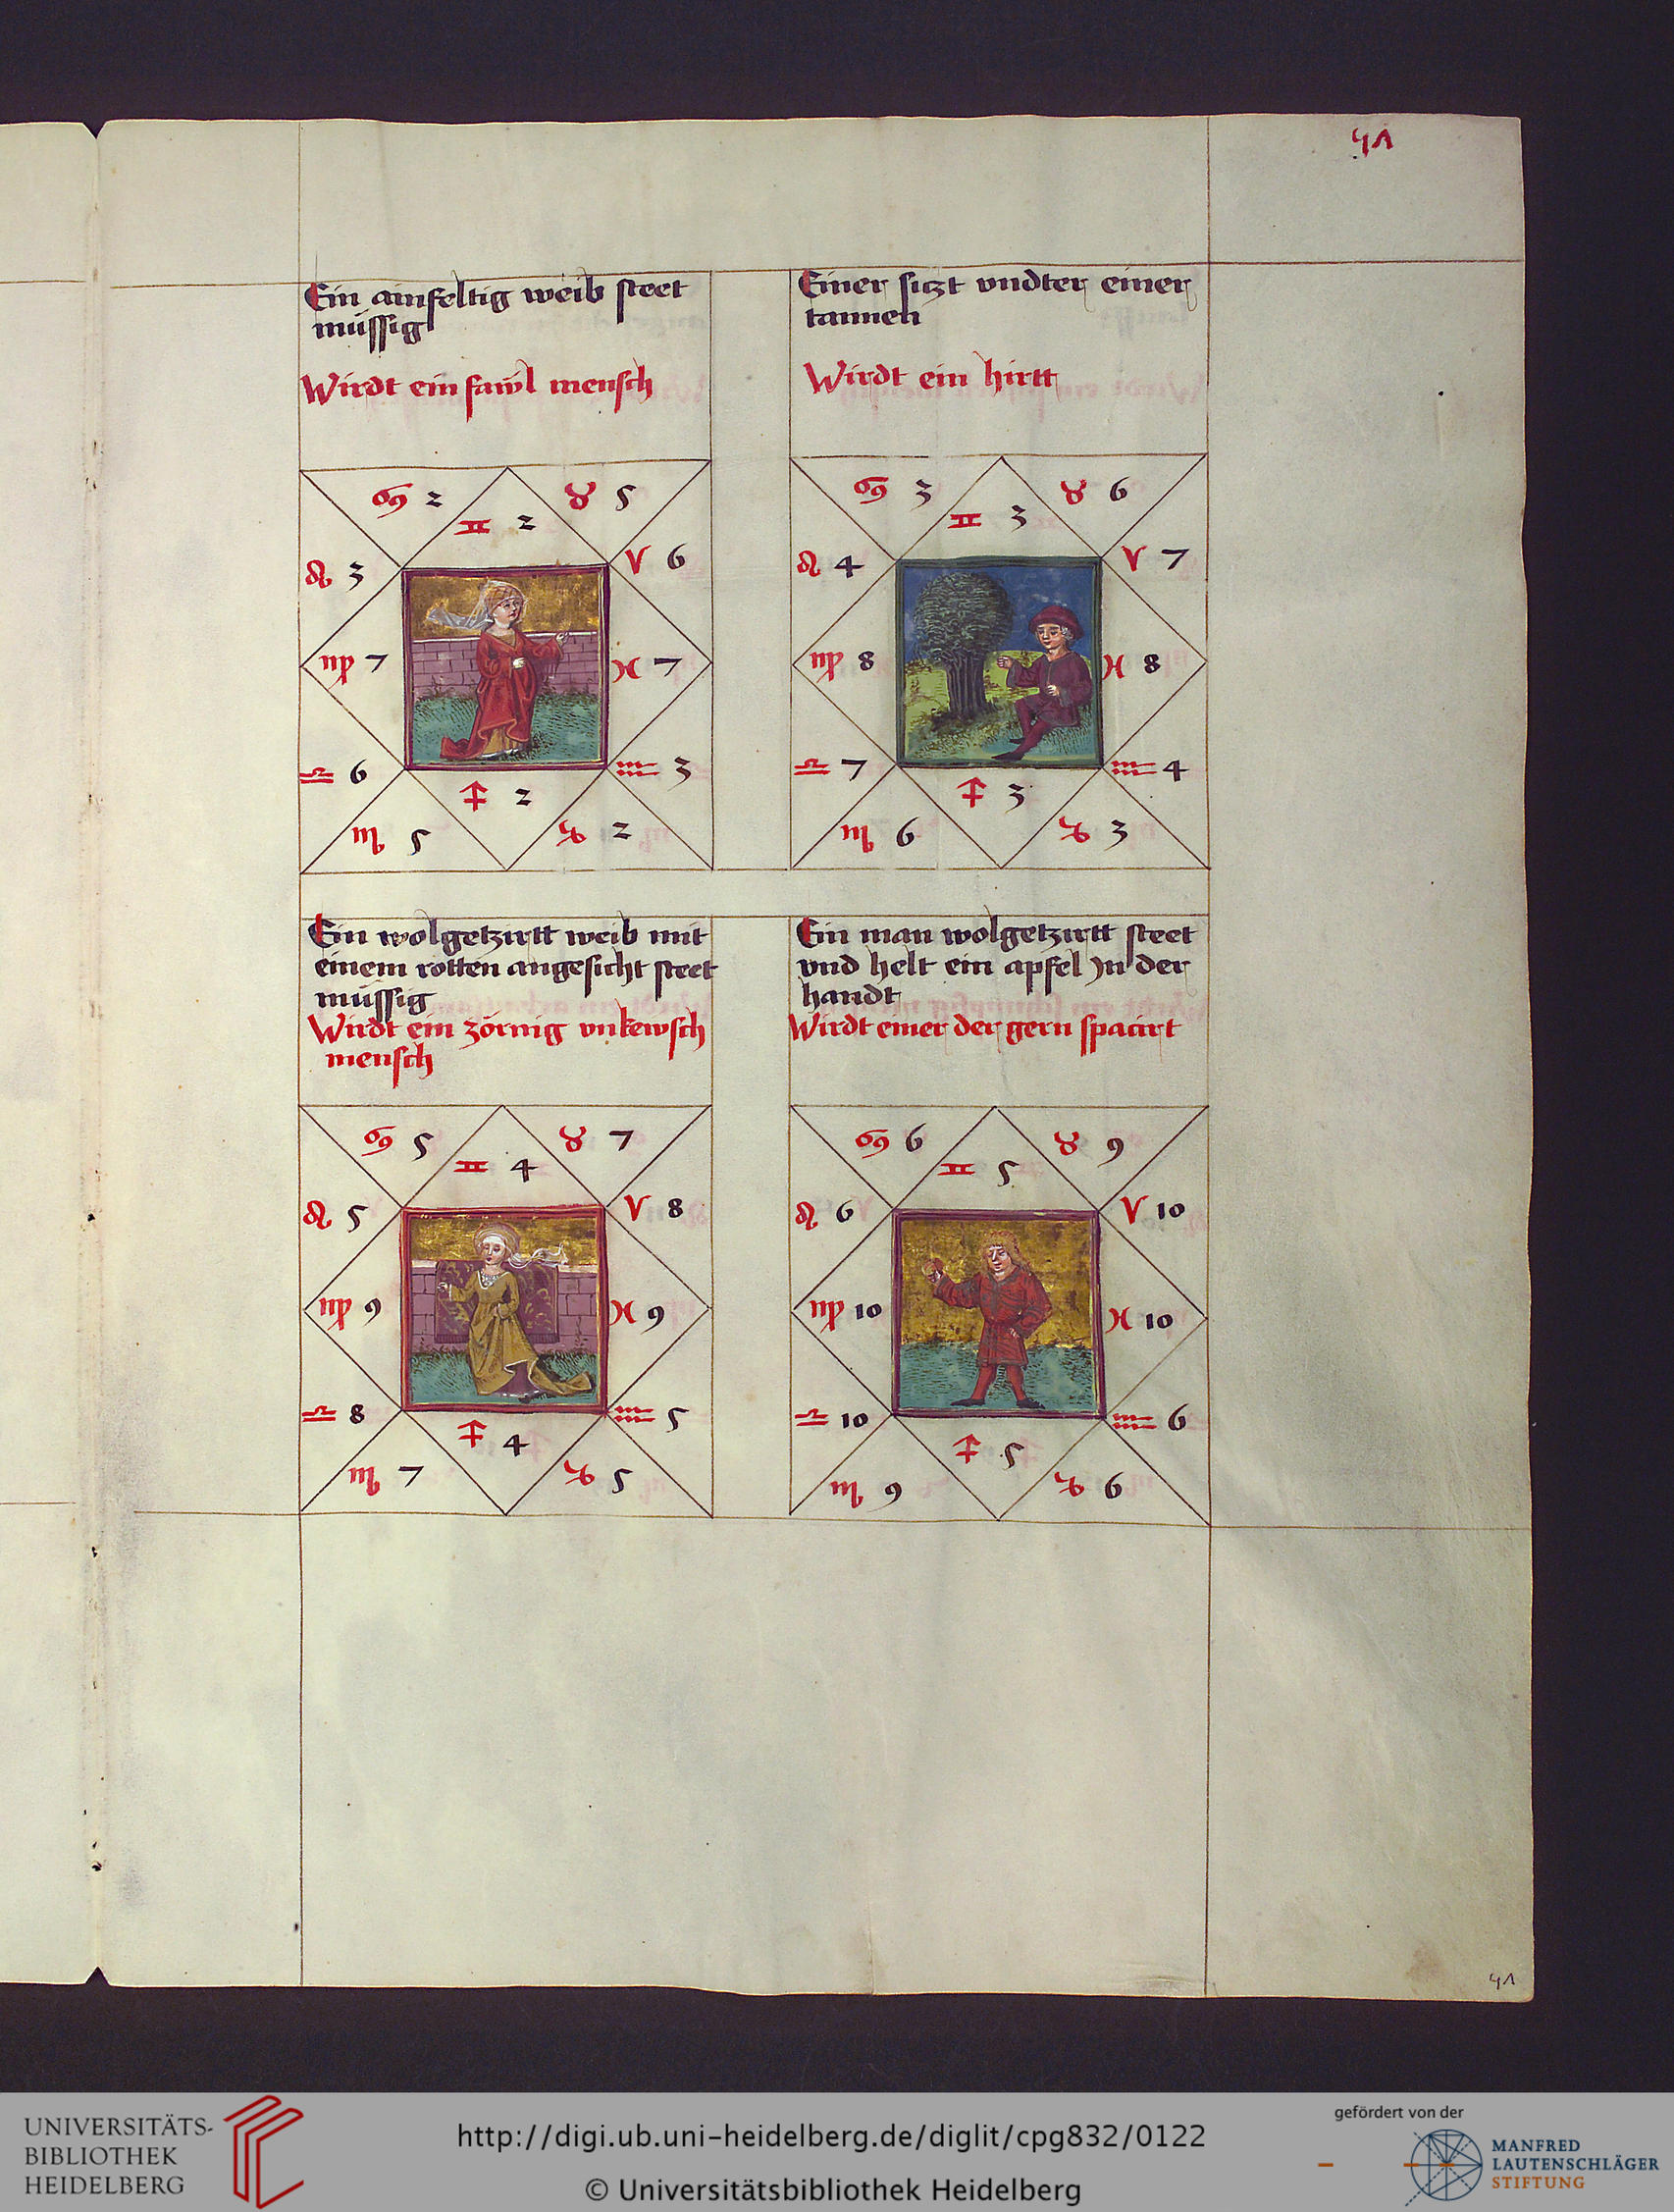 51
Ein ainfeltig weib steet
müssig
Wirdt ein fawl mensch
♋ 2
♊ 2
♉ 5
♌ 3
♈ 6
♍ 7
♓ 7
♎ 6
♒ 3
♐ 2
♏ 5
♑ 2
Einer sitzt vndter einer
tannen
Wirdt ein hirtt
♋ 3
♊ 3
♉ 6
♌ 4
♈ 7
♍ 8
♓ 8
♎ 7
♒ 4
♐ 3
♏ 6
♑ 3
Ein wolgetzirtt weib mit
einem rotten angesicht steet
müssig
Wirdt ein zörnig vnkewsch
mensch
♋ 5
♊ 4
♉ 7
♌ 5
♈ 8
♍ 9
♓ 9
♎ 8
♒ 5
♐ 4
♏ 7
♑ 5
Ein man wolgetzirtt steet
vnd helt ein apfel Jn der
handt
Wirdt einer der gern spacirt
♋ 6
♊ 5
♉ 9
♌ 6
♈ 10
♍ 10
♓ 10
♎ 10
♒ 6
♐ 5
♏ 9
♑ 6
51
UNIVERSITÄTS-
BIBLIOTHEK
HEIDELBERG
http://digi.ub.uni-heidelberg.de/diglit/cpg832/0122
© Universitätsbibliothek Heidelberg
gefördert von der
MANFRED
LAUTENSCHLÄGER
STIFTUNG